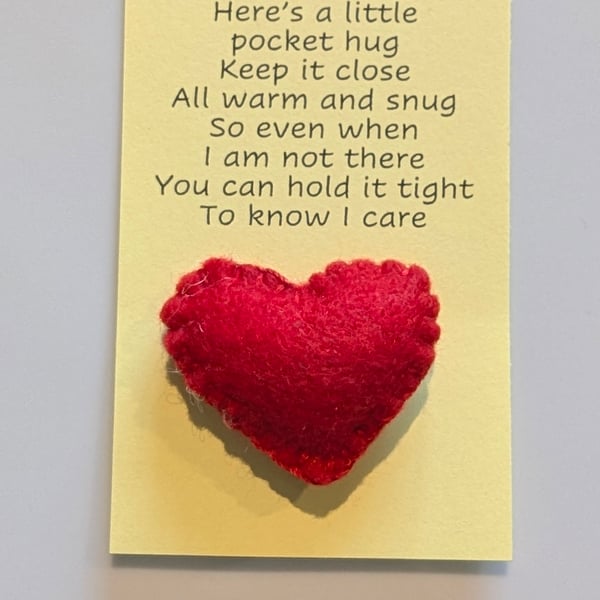 Here's a little
pocket hug
Keep it close
All warm and snug
So even when
I am not there
You can hold it tight
To know I care